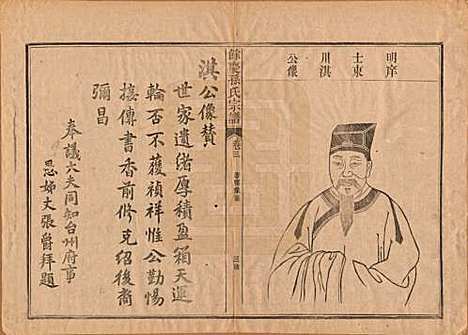 明庠
士東
川淇
公像
餘姚孫氏宗譜
卷三
淇公像贊
世家遺緒厚積盈箱天運
輪否不獲禎祥惟公勤惕
接傳書香前修克紹後裔
彌昌
奉議大夫同知台州府事
忍娣丈張爵拜題